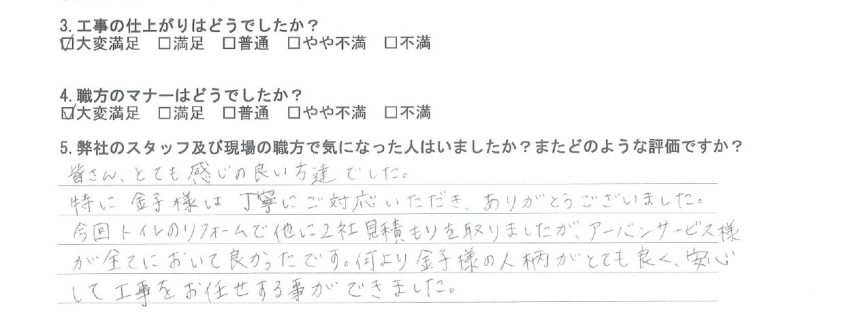 3.工事の仕上がりはどうでしたか？
☑大変満足 □満足 □普通 □やや不満 □不満
4.職方のマナーはどうでしたか？
☑大変満足 □満足 □普通 □やや不満 □不満
5.弊社のスタッフ及び現場の職方で気になった人はいましたか？またどのような評価ですか？
皆さん、とても感じの良い方達でした。
特に金子様は丁寧にご対応いただき、ありがとうございました。
今回トイレのリフォームで他に2社見積もりを取りましたが、アーバンサービス様
が全てにおいて良かったです。何より金子様の人柄がとても良く、安心
して工事をお任せする事ができました。